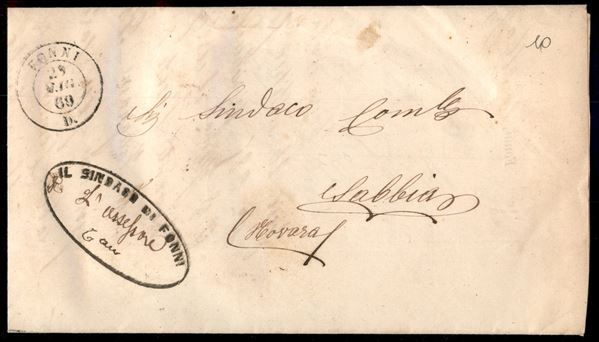 FONNI
25
MAG
69
D.
10
Al Sindaco Com le
Sabbia
(Novara)
IL SINDACO DI FONNI
L'assessore